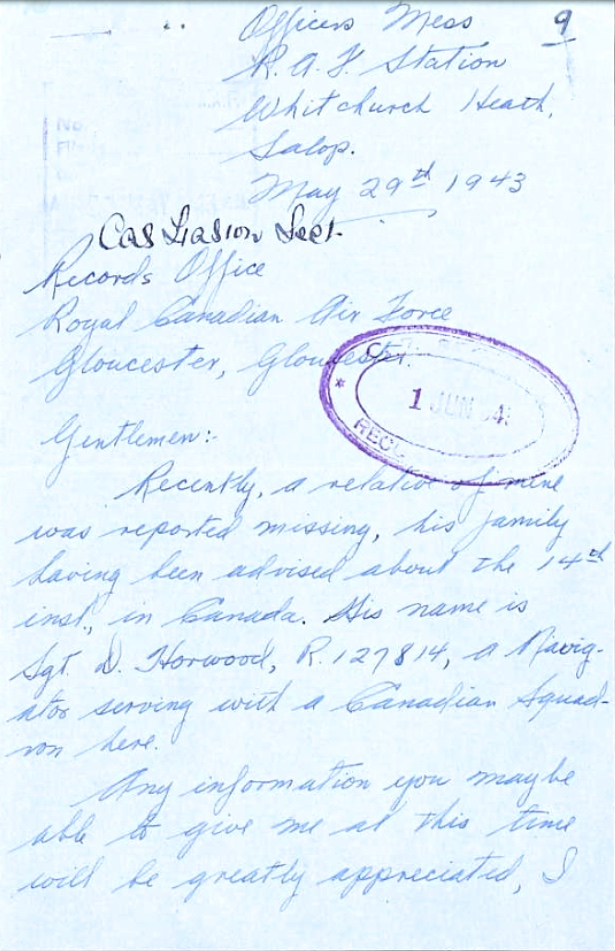 Officers Mess 9
R.A.F. Station
Whitchurch Heath,
Salop.
May 29th 1943
Cas Liasion Sect.
Records Office
Royal Canadian Air Force
Gloucester, Gloucester.
1 JUN
Gentlemen:-
Recently, a relative of mine
was reported missing, his family
having been advised about the 14th
inst., in Canada. His name is
Sgt. D. Horwood, R.127814, a Navig-
ator serving with a Canadian Squad-
ron here.
Any information you maybe
able to give me at this time
will be greatly appreciated, I